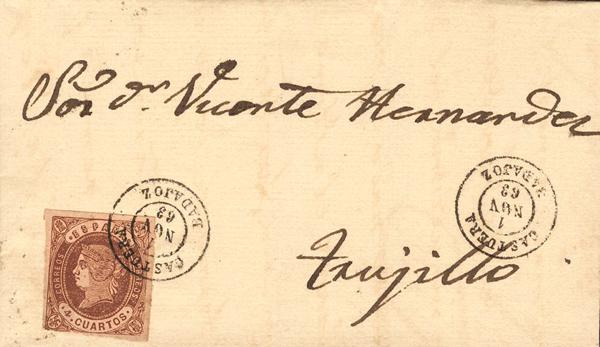 Sor. dn. Vicente Hernandez
Trujillo
CASTUERA
1
NOV
63
BADAJOZ
CASTUERA
1
NOV
63
BADAJOZ
ESPAÑA
CORREOS
4 CUARTOS